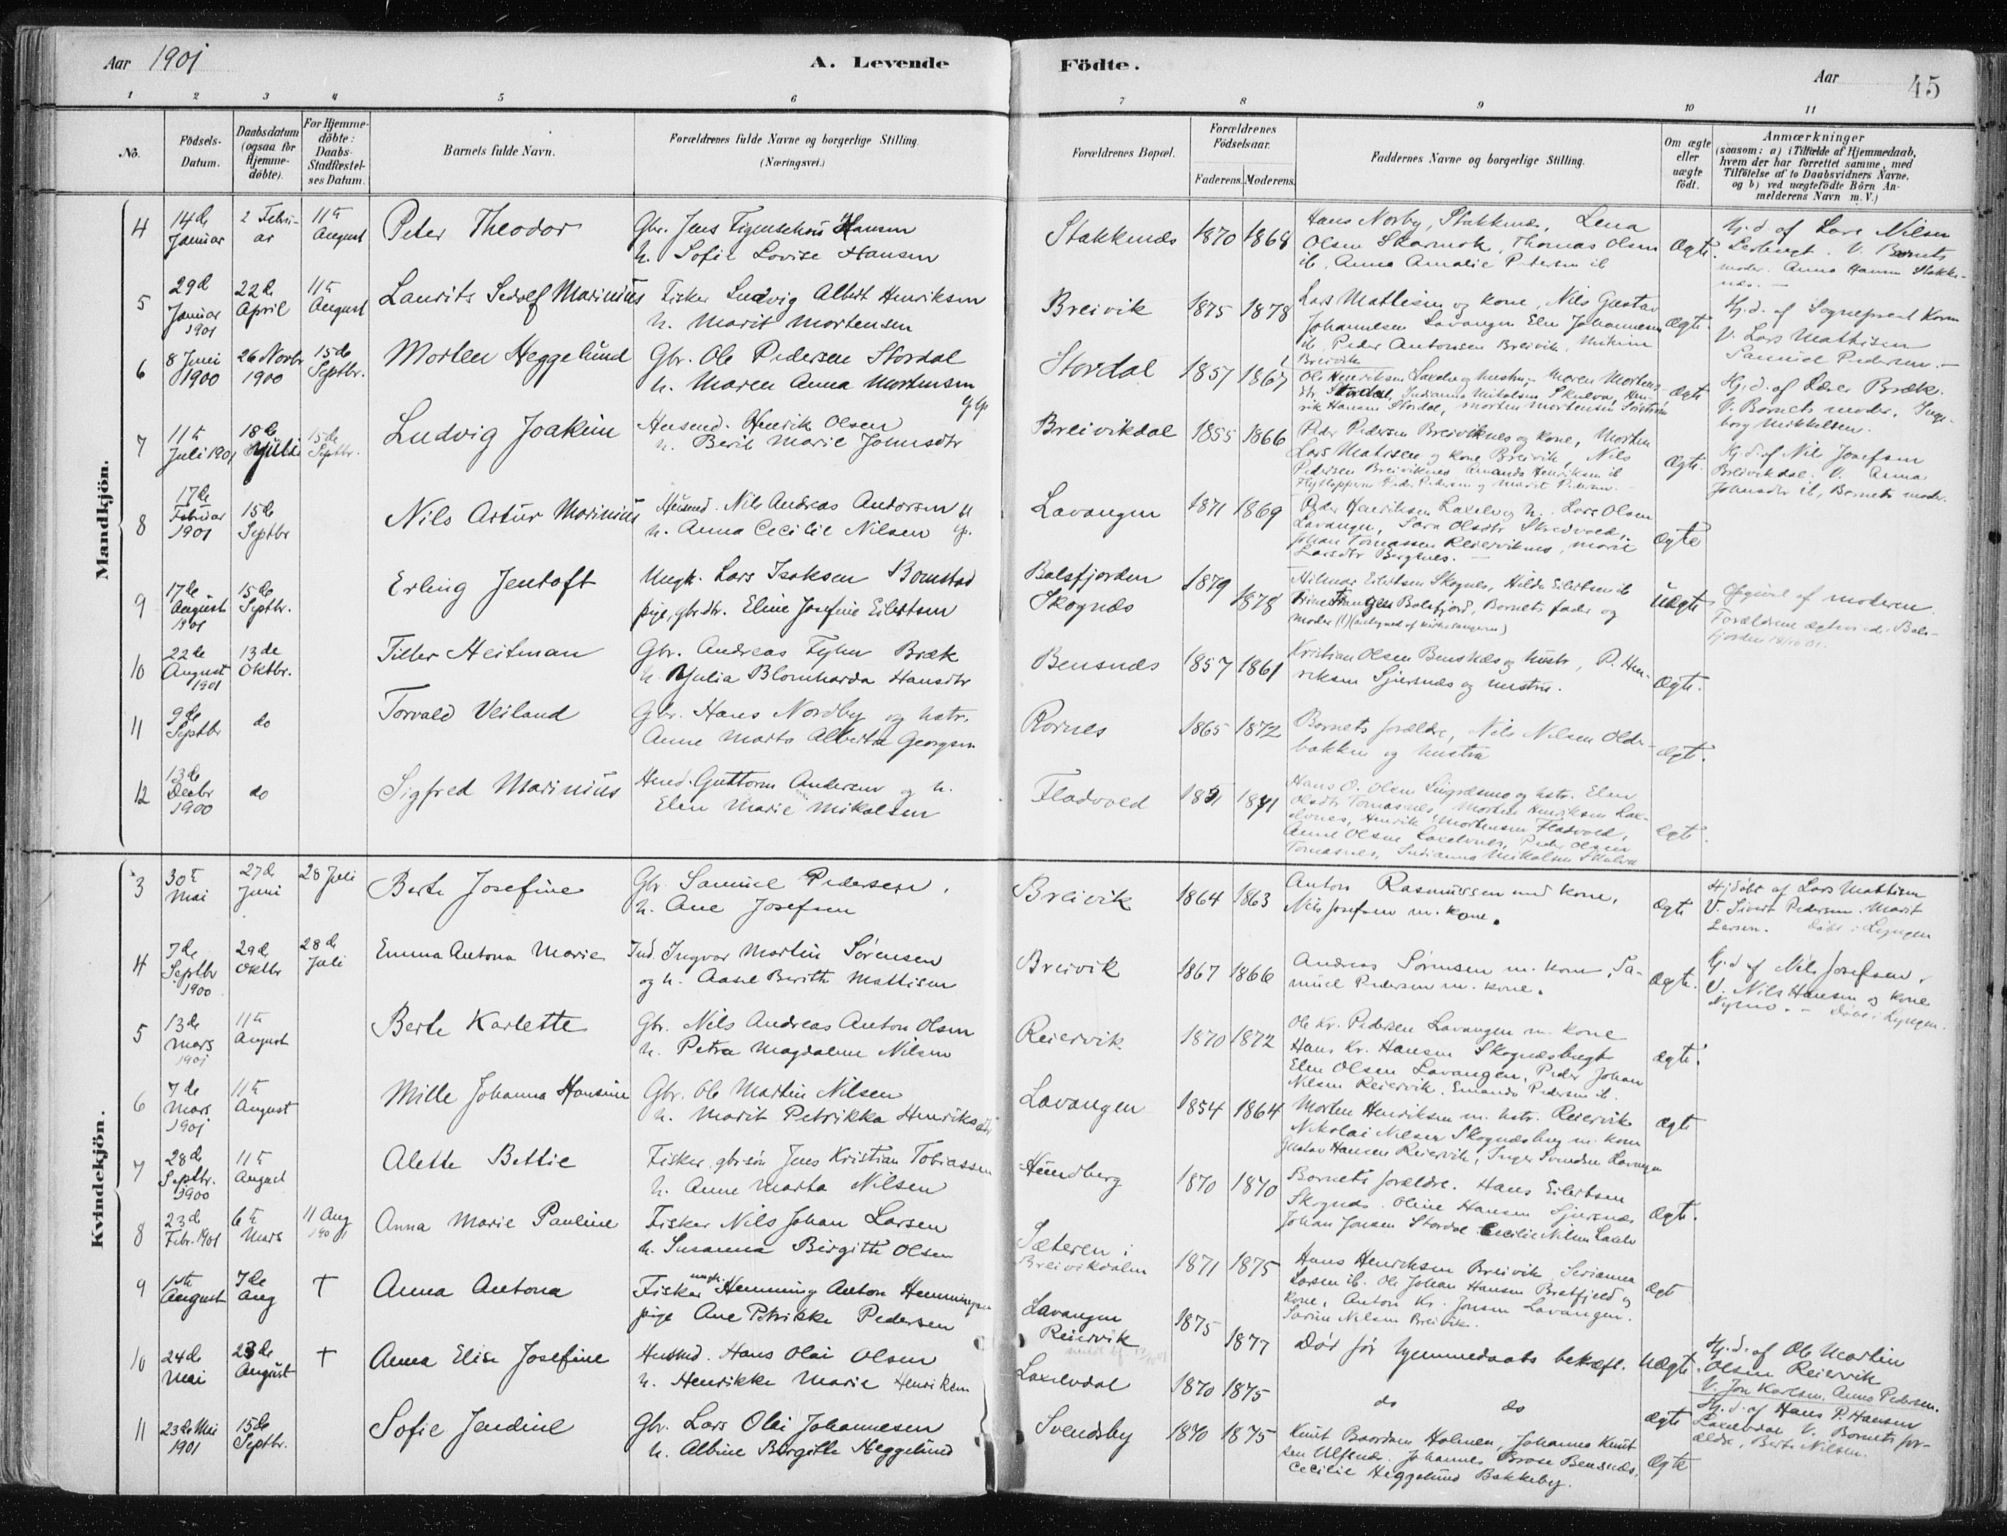 Aar 1901
A. Levende Födte.
Aar 45
1 2 3 4 5 6 7 8 9 10 11
No.
Födsels-Datum.
Daabsdatum (ogsaa for Hjemme-döbte).
For Hjemme-döbte: Daabs-Stadfæstel-ses Datum.
Barnets fulde Navn.
Forældrenes fulde Navne og borgerlige Stilling. (Næringsvei.)
Forældrenes Bopæl.
Forældrenes Födselsaar.
Faderens. Moderens.
Faddernes Navne og borgerlige Stilling.
Om ægte eller uægte födt.
Anmærkninger (saasom: a) i Tilfælde af Hjemmedaab, hvem der har forrettet samme, med Tilföielse af to Daabsvidners Navne, og b) ved uægtefödte Börn An-melderens Navn m. V.)
Mandkjön.
4 14de Januar 2 Febru-ar 11te August Peter Theodor Gbr. Jens Hansen h. Sofie Lovise Hansen Stakknæs 1870 1868 Hans Norby, Stakknæs, Lena Olsen, Thomas Olsen ib. Anna Amalie Pedersen ib Ægte. Hj.d. af Lars Nilsen V. Barnets moder. Anna Hansen Stakknæs.
5 29de Januar 1901 22de April 11te August Laurits Sedolf Marinius Fisker Ludvig Albert Henriksen h. Marit Mortensen Breivik 1875 1878 Lars Mattisen og kone, Nils Gustav Johannesen Lavangen Elen Johannesen ib. Peder Antonsen Breivik, Breivik Ægte. Hj.d. af Sogneprest V. Lars Mathisen Samuel Pedersen.
6 8 Juni 1900 26 Novbr 1900 15de Septbr. Morten Heggelund Gbr. Ole Pedersen Stordal h. Maren Anna Mortensen Stordal 1857 1867 Ole Henriksen Laxelv og hustru, Maren Mortens-dtr. Stordal, Indianna Mikalsen Skulva, Hen-rik Hansen Stordal, Morten Mortensen Ægte Hj.d. af Lærer Bræk. V. Barnets moder, Inge-borg Mikkelsen.
7 11te Juli 1901 18de Juli 15de Septbr. Ludvig Joakim Husmd. Henrik Olsen h. Berit Marie Johnsdtr Breivikdal 1855 1866 Peder Pedersen Breiviknes og kone, Morten Lars Matisen og kone Breivik, Nils Pedersen Breiviknes Amanda Henriksen ib Peder Pedersen og Marit Pedersen. Ægte. Hj.d. af Nils Josefsen Breivikdal. V. Anna Johnsdtr ib, Barnets moder.
8 17de Februar 1901 15de Septbr Nils Artur Marinius Husmd. Nils Andreas Andersen h. Anna Cecilie Nilsen Lavangen 1871 1869 Peder Henriksen Laxelv og h. Lars Olsen Lavangen, Sara Olsdtr Johan Tomassen Reierviknes, Marie Larsdtr Bergnes. Ægte
9 17de August 1901 15de Septbr. Erling Jentoft Ungk. Lars Isaksen Bomstad pige, gbrdtr. Eline Josefine Eilertsen Balsfjorden Skognæs 1879 1878 Hilmar Eilertsen Skognes, Hilda Eilertsen ib Balsfjord, Barnets fader og moder (!) (antegned af kirkesangeren) Uægte Opgivet af moderen. Forældrene ægteviede Bals-fjorden 18/10 01.
10 22de August 1901 13de Oktbr. Tiller Heitman Gbr. Andreas Fyhn Bræk h. Julia Blomharda Hansdtr Bensnæs 1857 1861 Kristian Olsen Bensnæs og hustr., P. Hen-riksen Sjursnæs og hustru. Ægte.
11 9de Septbr do Torvald Veiland Gbr. Hans Nordby og hstr. Anne Marta Alberta Georgsen Rornes 1865 1872 Barnets forældre, Nils Nilsen Older-bakken og hustru Ægte.
12 13de Decbr 1900 do Sigfred Marinius Husmd. Guttorm Andersen og h. Elen Marie Mikalsen Fladvold 1851 1871 Hans O. Olsen og hstr. Elen Olsdtr Tomasnes, Morten Henriksen Lax-elvnes, Henrik Mortensen Fladvold, Anne Olsen Laxelvnes, Peder Olsen Tomasnes, Indianna Mikalsen Skulva Ægte
Kvindekjön.
3 30te Mai 27de Juni 28 Juli Berte Josefine Gbr. Samuel Pedersen. h. Ane Josefsen Breivik 1864 1863 Anton Rasmussen med kone, Nils Josefsen m. kone. Ægte Hjdøbt af Lars Mattisen V. Sivert Pedersen. Marit Larsen. Døbt i Lyngen
4 7de Septbr 1900 29de Oktbr 28de Juli Emma Antona Marie Ind. Ingvar Martin Sørensen og h. Aase Berith Mattisen Breivik 1867 1866 Andreas Sørensen m. kone, Sa-muel Pedersen m. kone. Ægte. Hj.d. af Nils Josefsen. V. Nils Hansen og kone Nymo. - Døbt i Lyngen.
5 13de Mars 1901 11te August Berte Karlette Gbr. Nils Andreas Anton Olsen h. Petra Magdalene Nilsen Reiervik 1870 1872 Ole Kr. Pedersen Lavangen m. kone Hans Kr. Hansen Skognæsbugt Elen Olsen Lavangen, Peder Johan Nilsen Reiervik, Emanda Pedersen ib. Ægte.
6 7de Mars 1901 11te August Mille Johanna Hansine Gbr. Ole Martin Nilsen h. Marit Petrikka Henriksdtr Lavangen 1854 1864 Morten Henriksen m. hstr. Reiervik Nikolai Nilsen Skognæsbug m. kone Gustav Hansen Reiervik, Inger Svendsen Lavangen Ægte
7 28de Septbr. 1900 11te August Alette Bettie Fisker, gbrsøn Jens Kristian Tobiassen h. Anne Marta Nilsen Hundberg 1870 1870 Barnets forældre. Hans Eilertsen Skognæs. Oline Hansen Sjursnæs Johan Jonsen Stordal Cecilie Nilsen Laxelv Ægte.
8 23de Febr. 1901 6te Mars 11 Aug 1901 Anna Marie Pauline Fisker Nils Johan Larsen h. Susanna Birgitte Olsen Sæteren i Breivikdalen 1871 1875 Hans Henriksen Breivik, Serianna Larsen ib. Ole Johan Hansen Bratfjeld og kone, Anton Kr. Jonsen Lavangen. Sarine Nilsen Breivik. Ægt
9 1ste August 7de Aug † Anna Antona Fisker ungk. Hemming Anton Hemmingsen pige Ane Petrikke Pedersen Lavangen Reiervik 1875 1877 Død før hjemmedaabs bekræft. Uægte. Hj.d. af Ole Martin Olsen Reiervik V. Jon Karlsen, Anna Pedersen.
10 24de Mai 23de August † Anna Elise Josefine Husmd. Hans Olai Olsen h. Henrikke Marie Henriksen Laxelvdal 1870 1875 do do Ægte Hj.d. af Hans P. Hansen Laxelvdal V. Barnets for-ældre, Berte Nilsen.
11 23de Mai 1901 15de Septbr. Sofie Jendine Gbr. Lars Olai Johannesen h. Albine Birgitte Heggelund Svendsby 1870 1875 Knut Baardsen Holmen, Johanna Knut-sen Ulfsnæs, Johannes Brose Bensnæs, Cecilie Heggelund Bakkeby. Ægte